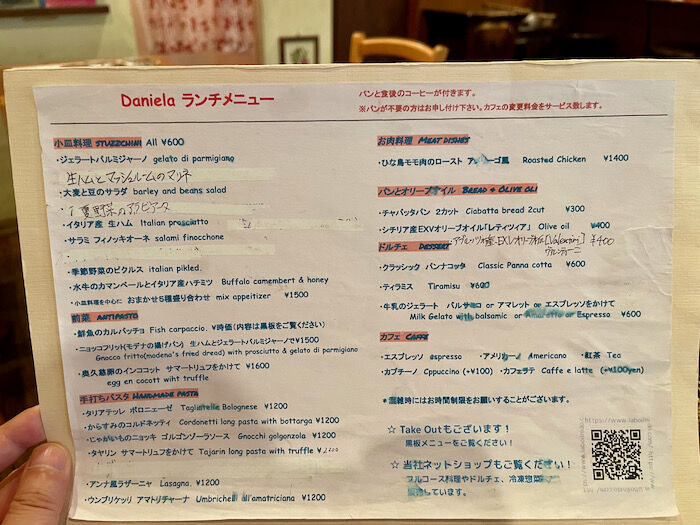 Daniela ランチメニュー
パンと食後のコーヒーが付きます。
※パンが不要の方はお申し付け下さい。カフェの変更料金をサービス致します。
小皿料理 STUZZCHINI All ¥600
・ジェラートパルミジャーノ gelato di parmigiano
生ハムとマッシュルームのマリネ
・大麦と豆のサラダ barley and beans salad
夏野菜のアラビアータ
・イタリア産 生ハム Italian prosciutto
・サラミ フィノッキオーネ salami finocchone
・季節野菜のピクルス italian pikled.
・水牛のカマンベールとイタリア産ハチミツ Buffalo camembert & honey
・小皿料理を中心に おまかせ5種盛り合わせ mix appeitizer ¥1500
前菜 ANTIPASTO
・鮮魚のカルパッチョ Fish carpaccio. ¥時価(内容は黒板をご覧ください)
・ニョッコフリット(モデナの揚げパン) 生ハムとジェラートパルミジャーノで¥1500
Gnocco fritto(modena's fried dread) with prosciutto & gelato di parmigiano
・奥久慈卵のインココット サマートリュフをかけて ¥1600
egg en cocott wiht truffle
手打ちパスタ HANDMADE PASTA
・タリアテッレ ボロニェーゼ Tagliatelle Bolognese ¥1200
・からすみのコルドネッティ Cordonetti long pasta with bottarga ¥1200
・じゃがいものニョッキ ゴルゴンゾーラソース Gnocchi golgonzola ¥1200
・タヤリン サマートリュフをかけて Tajarin long pasta with truffle
・アンナ風ラザーニャ Lasagna. ¥1200
・ウンブリケッリ アマトリチャーナ Umbrichelli all'amatriciana ¥1200
お肉料理 MEAT DISHES
・ひな鳥モモ肉のロースト 風 Roasted Chicken ¥1400
パンとオリーブオイル BREAD & OLIVE OLI
・チャバッタパン 2カット Ciabatta bread 2cut ¥300
・シチリア産EXVオリーブオイル「レティツィア」 Olive oil ¥400
ドルチェ DESSERT ・アブルッツォ産EXVオリーブオイル[Valentini] ¥400
ヴァレンティーニ
・クラッシック パンナコッタ Classic Panna cotta ¥600
・ティラミス Tiramisu ¥600
・牛乳のジェラート バルサミコ or アマレット or エスプレッソをかけて
Milk Gelato with balsamic or Amaretto or Espresso ¥600
カフェ CAFFE
・エスプレッソ espresso ・アメリカーノ Americano ・紅茶 Tea
・カプチーノ Cppuccino (+¥100) ・カフェラテ Caffe e latte (+¥100yen)
＊混雑時にはお時間制限をお願することがございます。
☆ Take Outもございます!
黒板メニューをご覧ください!
☆ 当社ネットショップもご覧ください!
フルコース料理やドルチェ、冷凍惣菜
しています。